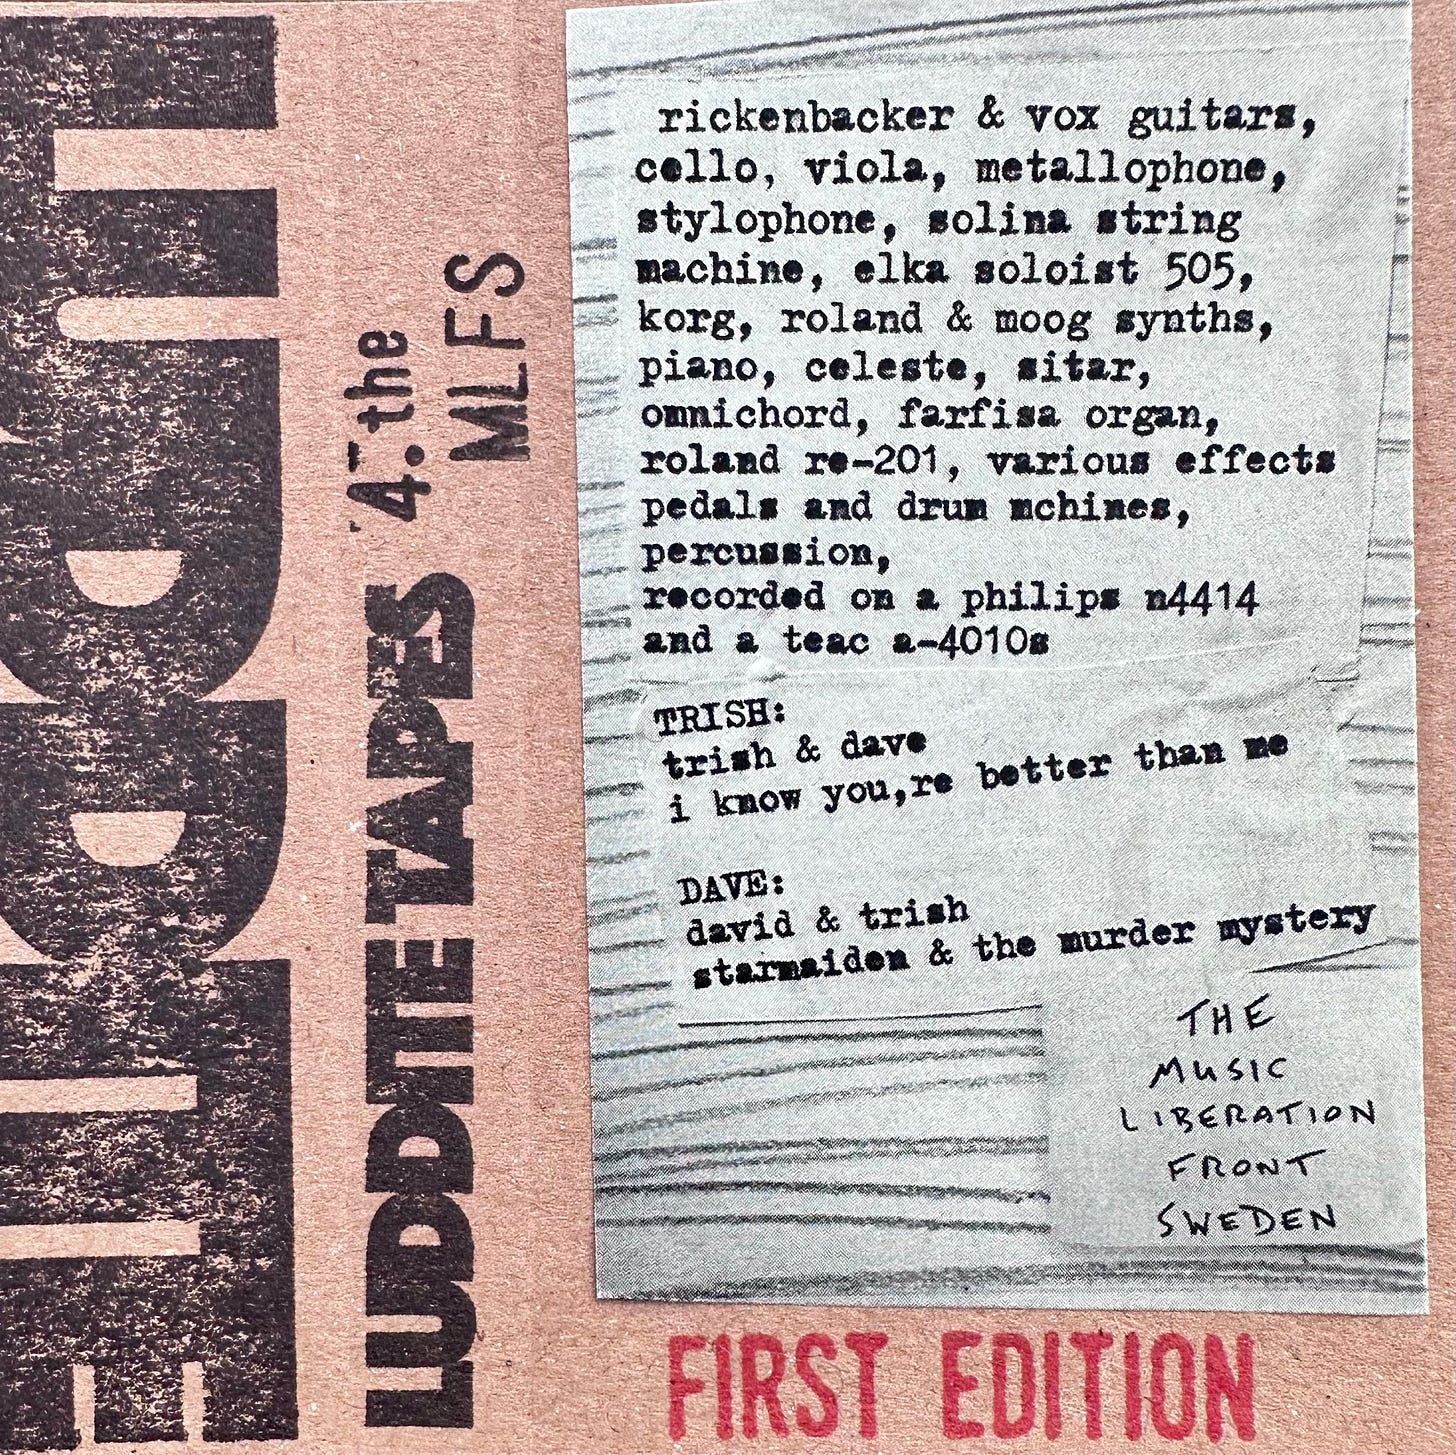 rickenbacker & vox guitars,
cello, viola, metallophone,
stylophone, solina string
machine, elka soloist 505,
korg, roland & moog synths,
piano, celeste, sitar,
omnichord, farfisa organ,
roland re-201, various effects
pedals and drum mchines,
percussion,
recorded on a philips n4414
and a teac a-4010s
TRISH:
trish & dave
i know you,re better than me
DAVE:
david & trish
starmaiden & the murder mystery
THE
MUSIC
LIBERATION
FRONT
SWEDEN
FIRST EDITION
LUDDITE TAPES '4. the
MLFS